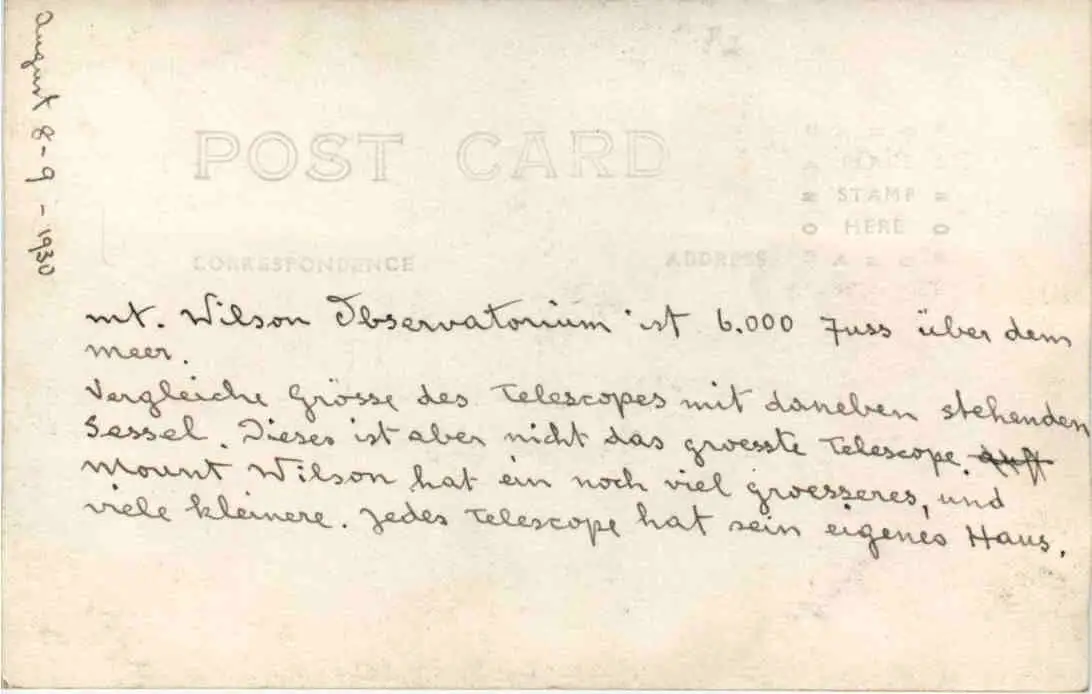 August 8-9-1930
POST CARD
PLACE
STAMP
HERE
CORRESPONDENCE
ADDRESS
Mt. Wilson Observatorium ist 6.000 Fuss über dem
Meer.
Vergleiche Grösse des Telescopes mit daneben stehenden
Sessel. Dieses ist aber nicht das groesste Telescope.
Mount Wilson hat ein noch viel groesseres, und
viele kleinere. Jedes Telescope hat sein eigenes Haus.